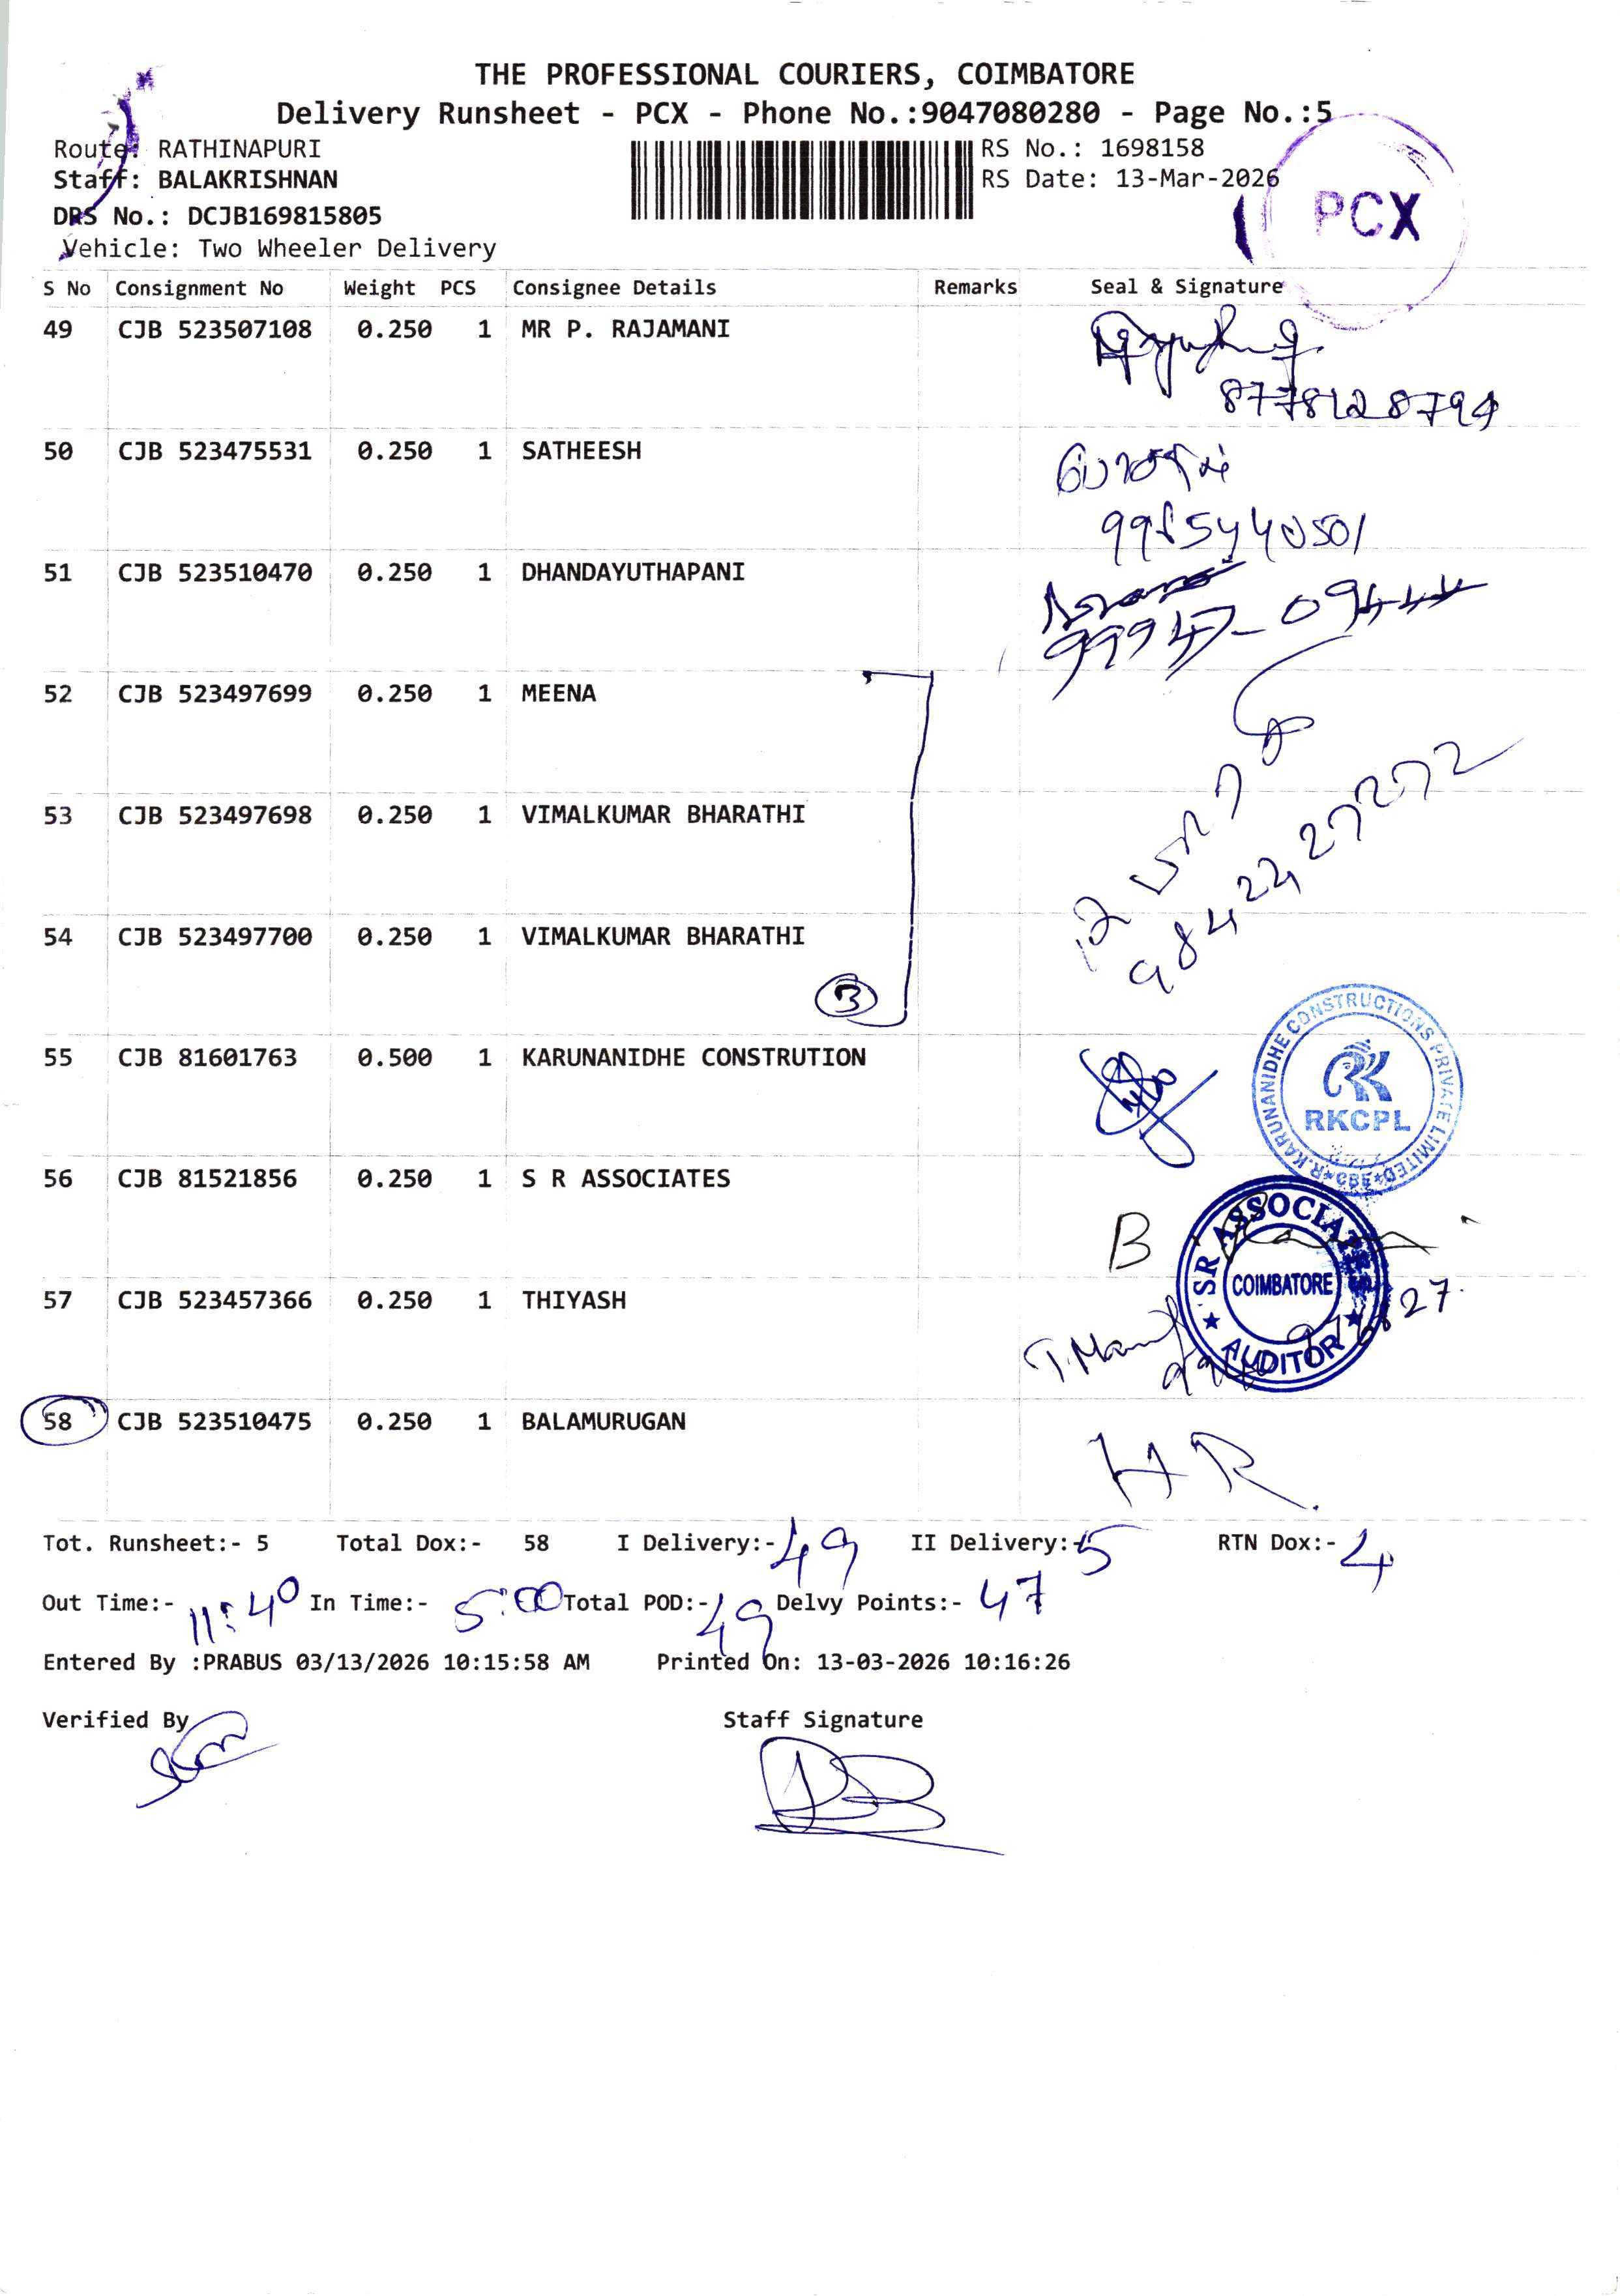 THE PROFESSIONAL COURIERS, COIMBATORE
Delivery Runsheet - PCX - Phone No.:9047080280 - Page No.:5
Route: RATHINAPURI
RS No.: 1698158
Staff: BALAKRISHNAN
RS Date: 13-Mar-2026
PCX
DRS No.: DCJB169815805
Vehicle: Two Wheeler Delivery
S No Consignment No Weight PCS Consignee Details Remarks Seal & Signature
49 CJB 523507108 0.250 1 MR P. RAJAMANI
8778128794
50 CJB 523475531 0.250 1 SATHEESH
51 CJB 523510470 0.250 1 DHANDAYUTHAPANI
52 CJB 523497699 0.250 1 MEENA
53 CJB 523497698 0.250 1 VIMALKUMAR BHARATHI
54 CJB 523497700 0.250 1 VIMALKUMAR BHARATHI
3
55 CJB 81601763 0.500 1 KARUNANIDHE CONSTRUTION
R.KARUNANIDHE CONSTRUCTIONS PRIVATE LIMITED
RKCPL
*CBE*
56 CJB 81521856 0.250 1 S R ASSOCIATES
B
SR ASSOCIATES
COIMBATORE
AUDITOR
57 CJB 523457366 0.250 1 THIYASH
58 CJB 523510475 0.250 1 BALAMURUGAN
Tot. Runsheet:- 5 Total Dox:- 58 I Delivery:- 49 II Delivery:- 5 RTN Dox:- 4
Out Time:- 11:40 In Time:- 5:00 Total POD:- 49 Delvy Points:- 47
Entered By :PRABUS 03/13/2026 10:15:58 AM Printed On: 13-03-2026 10:16:26
Verified By Staff Signature